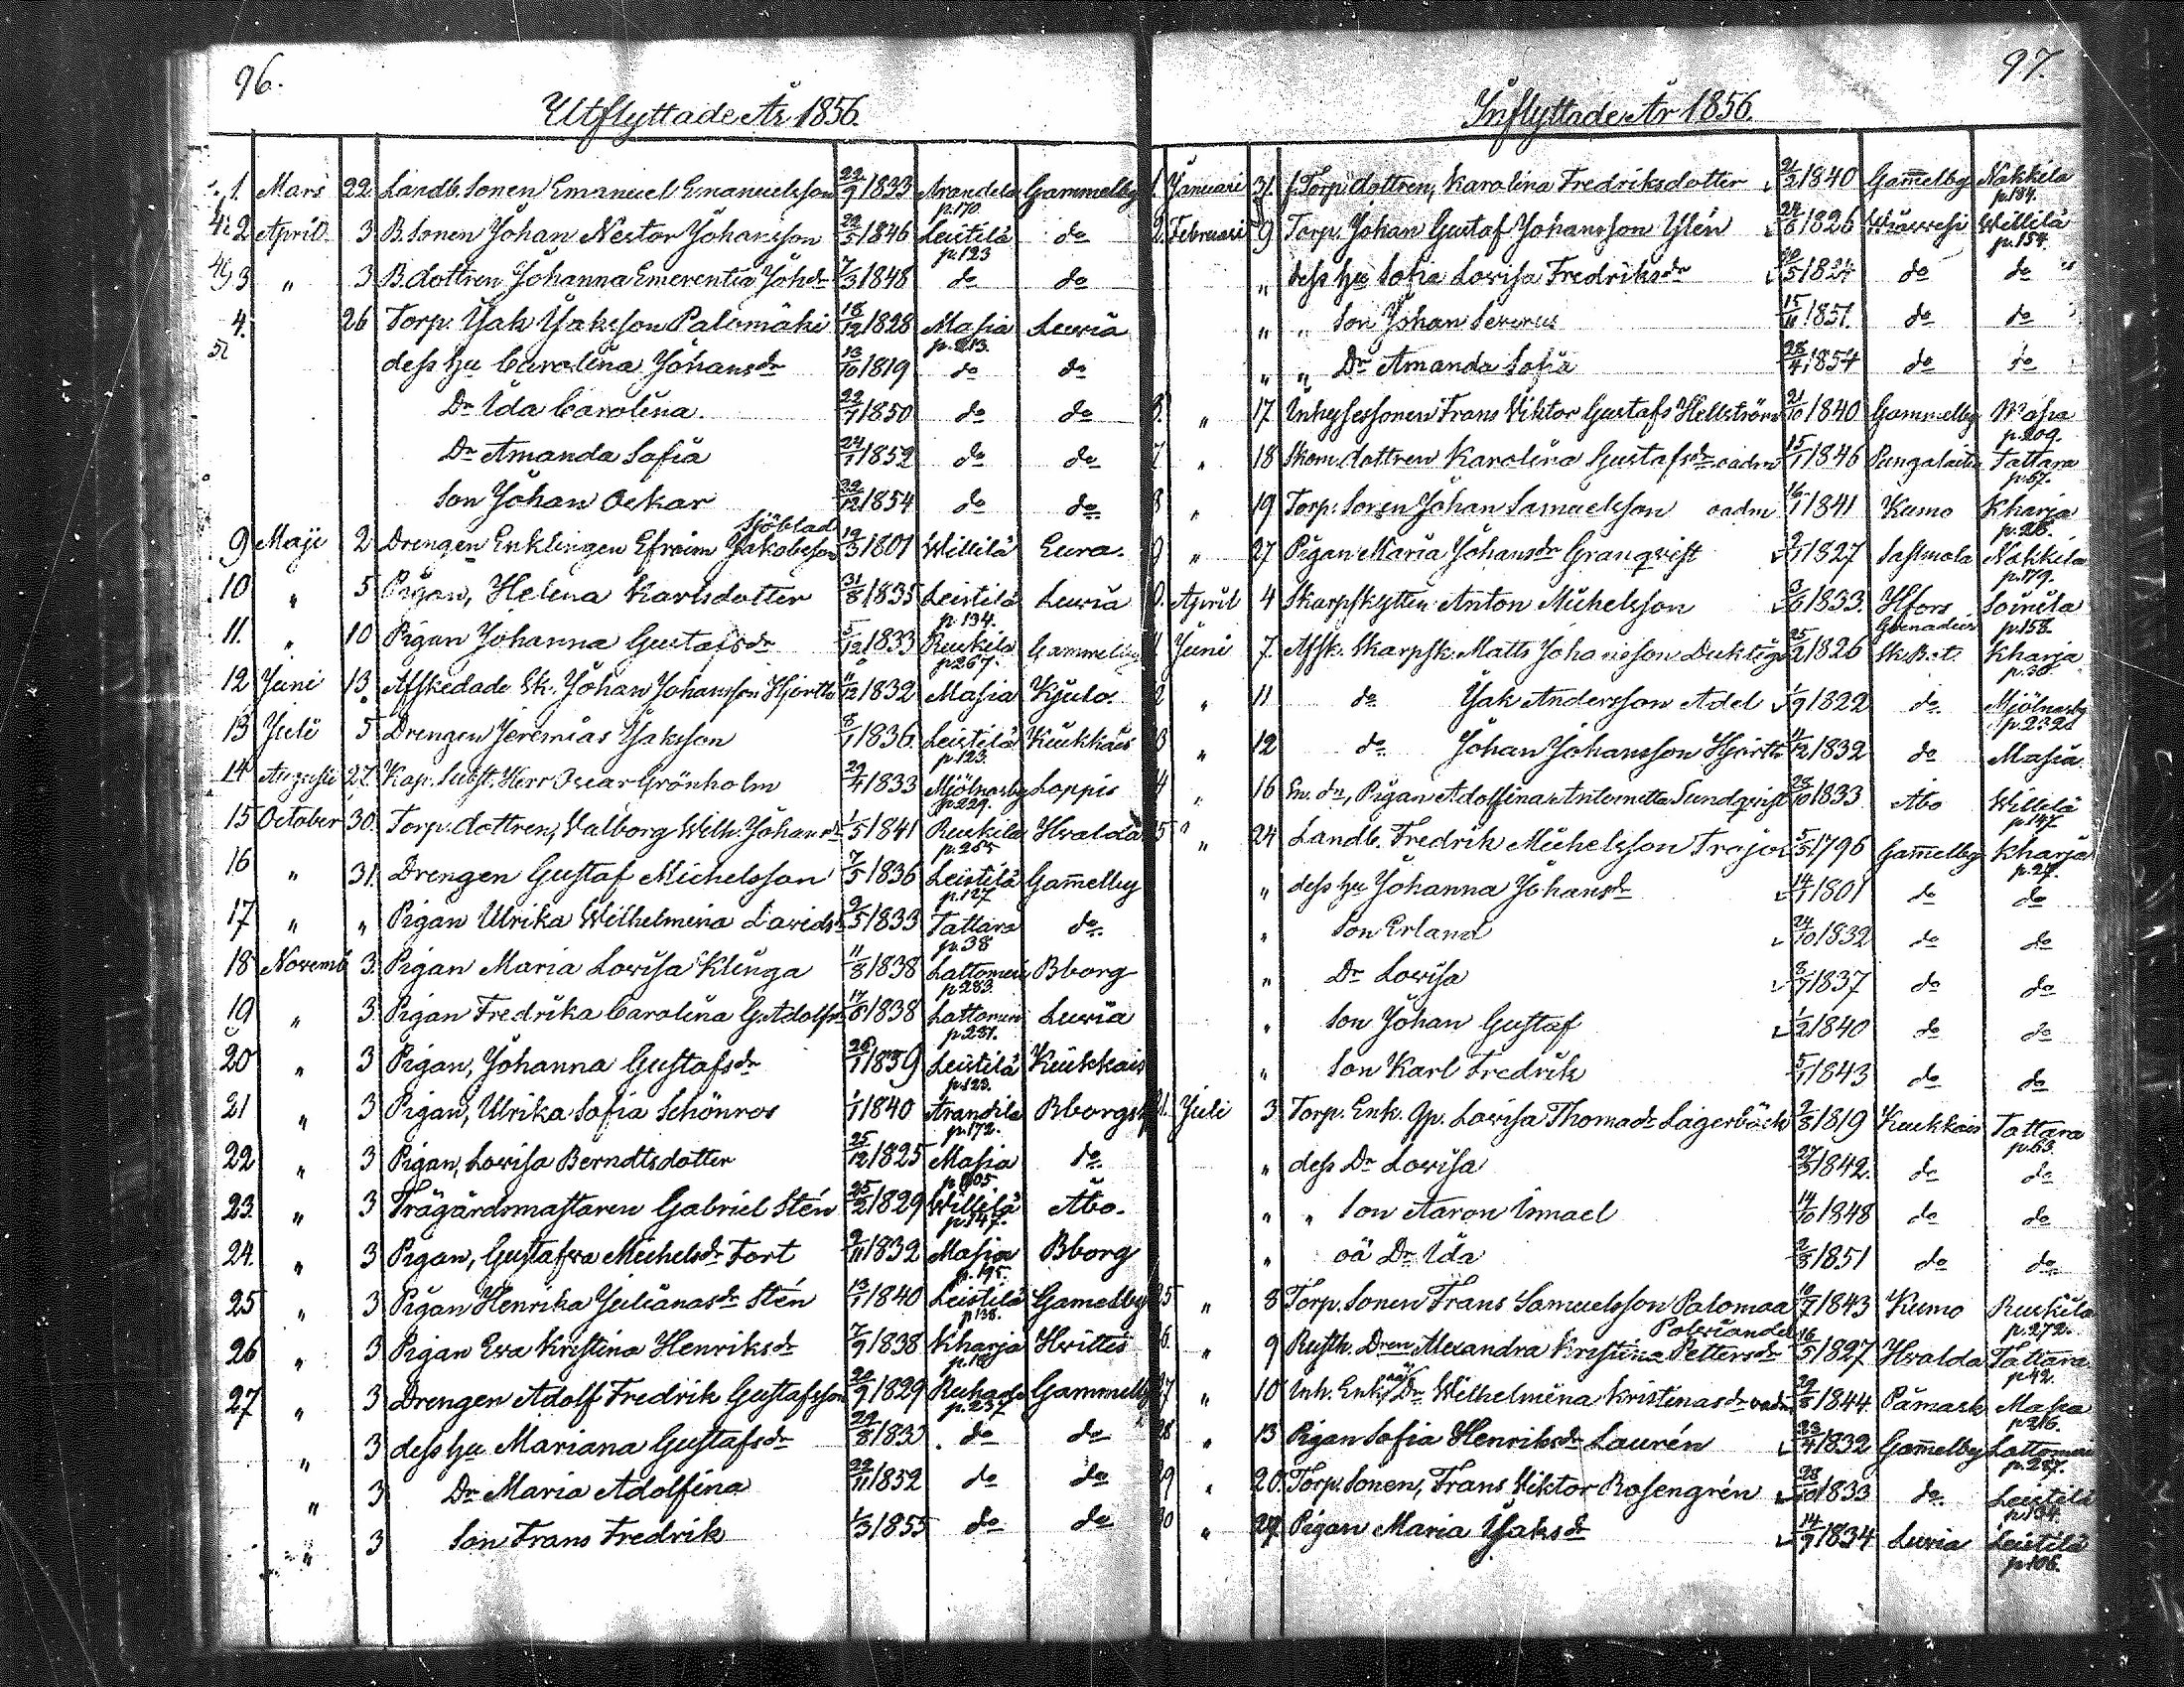 96.
Utflyttade År 1856.
1. Mars 22 Landb. Sonen Emanuel Emanuelsson 22/9 1833 Arandela p.170. Gammelby
2 April 3 B. Sonen Johan Nestor Johansson 22/5 1846 Leistilä p.123 do
3 " 3 B. dottren Johanna Emerentia Johdr 7/3 1848 do do
4. 26 Torp. Isak Isaksson Palomäki 18/12 1828 Masia p.213. Luvia
dess hu Carolina Johansdr 13/10 1819 do do
Dr Ida Carolina. 22/7 1850 do do
Dr Amanda Sofia 24/1 1852 do do
Son Johan Oskar 22/12 1854 do do
9 Maji 2 Drengen Enklingen Efraim Jakobsson Sjöblad 19/3 1801 Willilä Eura.
10 " 5 Pigan, Helena Karlsdotter 31/8 1835 Leistilä p.134. Luvia
11. " 10 Pigan Johanna Gustafsdr 5/12 1833 Ruskila p.267. Gammelby
12 Juni 13 Afskedade Sk. Johan Johansson Hjerth 11/12 1832 Masia Kjulo.
13 Juli 5 Drengen Jeremias Isaksson 8/1 1836 Leistilä p.123. Kiukkais
14 Augusti 27. Kap. Subst. Herr Oscar Grönholm 29/4 1833 Mjölnarby p.229. Loppis
15 October 30. Torp. dottren, Valborg Wilh. Johansdr 1/5 1841 Ruskila p.265 Hvalda
16 " 31. Drengen Gustaf Michelsson 7/5 1836 Leistilä p.127 Gam̄elby
17 " " Pigan Ulrika Wilhelmina Davidsdr 9/5 1833 Tattara p.38 do
18 Novemb 3. Pigan Maria Lovisa Klinga 11/8 1838 Lattomeri p.283. Bborg
19 " 3. Pigan Fredrika Carolina G. Adolfsdr 17/6 1838 Lattomeri p.281. Luvia
20 " 3 Pigan, Johanna Gustafsdr 26/1 1839 Leistilä p.123. Kiukkais
21 " 3 Pigan, Ulrika Sofia Schönros 1/1 1840 Arandila p.172. Bborgs
22 " 3 Pigan, Lovisa Berndtsdotter 25/12 1825 Masia do
23. " 3 Trägårdsmastaren Gabriel Stén 25/2 1829 Willilä p.147. Åbo.
24. " 3 Pigan, Gustafva Michelsdr Fort 9/11 1832 Masia p.195. Bborg
25 " 3 Pigan Henrika Julianasdr Stén 13/1 1840 Leistilä p.138. Gamelby
26 " 3 Pigan Eva Kristina Henriksdr 7/9 1838 Kharja Hvittis
27 " 3 Drengen Adolf Fredrik Gustafsson 20/9 1829 p.237 Gammelby
" 3 dess hu Mariana Gustafsdr 22/8 1833 do do
" 3 Dr Maria Adolfina 22/11 1852 do do
" 3 Son Frans Fredrik 1/3 1855 do do
97.
Inflyttade År 1856.
1 Januari 31. f. Torp. dottren, Karolina Fredriksdotter 21/2 1840 Gam̄elby Nakkila p.184.
2. Februari 9 Torp. Johan Gustaf Johansson Ylén 24/6 1826 Willilä p.154.
" dess hu Sofia Lovisa Fredriksdr 1824 do do
" " Son Johan Severus 15/11 1851. do do
" " Dr Amanda Sofia 28/4 1854 do do
" 17 Inhysessonen Frans Viktor Gustafs Hellström 21/10 1840 Gammelby Masia p.209.
7 " 18 Skom. dottren Karolina Gustafsdr oadm 15/1 1846 Pungalaitio Tattara p.67.
8 " 19 Torp. Sonen Johan Samuelsson oadm 1841 Kumo Kharja p.28.
9 " 27 Pigan Maria Johansdr Granqvist 1827 Sastmola Nakkila p.179.
0. April 4 Skarpskytten Anton Michelsson 1833. Hfors Soinila p.158.
1 Juni 7. Afsk. Skarpsk. Matts Johansson Duktig 25/2 1826 Grenadier Sk. B-t. Kharja p.30
2 " 11 do Isak Andersson Adel 1/9 1822 do Mjölnarby p.232
3 " 12 do Johan Johansson Hjerth 11/12 1832 do Masia
4 " 16 En. dr, Pigan Adolfina Antonetta Sundqvist 28/10 1833 Åbo Willilä p.147
5 " 24 Landb. Fredrik Michelsson Trojoi 5/5 1796 Gam̄elby Kharja
" dess hu Johanna Johansdr 14/7 1801 do do
" Son Erland 24/10 1832 do do
" Dr Lovisa 8/7 1837 do do
" Son Johan Gustaf 1/2 1840 do do
" Son Karl Fredrik 5/1 1843 do do
21. Juli 3 Torp. Enk. Qp. Lovisa Thomasdr Lagerbäck 2/8 1819 Kiukkais Tattara p.63.
" dess Dr Lovisa 27/3 1842. do do
" " Son Aaron Ismael 14/10 1848 do do
" oä Dr Ida 2/8 1851 do do
25 " 8 Torp. Sonen Frans Samuelsson Palomaa 10/7 1843 Kumo Ruskila p.272.
26. " 9 Rusth. Dren Alexandra Kristina Pettersdr Polviander 16/5 1827 Hvalda Tattara p.42.
27 " 10 Inh. Enk. oä Dr Wilhelmina Kristinasdr oadm 29/8 1844 Påmark Masia p.216.
28 " 13 Pigan Sofia Henriksdr Laurén 23/4 1832 Gam̄elby Lattomeri p.287.
29 " 20. Torp. Sonen, Frans Viktor Rosengrén 28/10 1833 do Leistilä p.134.
30 " 29 Pigan Maria Isaksdr 14/9 1834 Luvia Leistilä p.106.